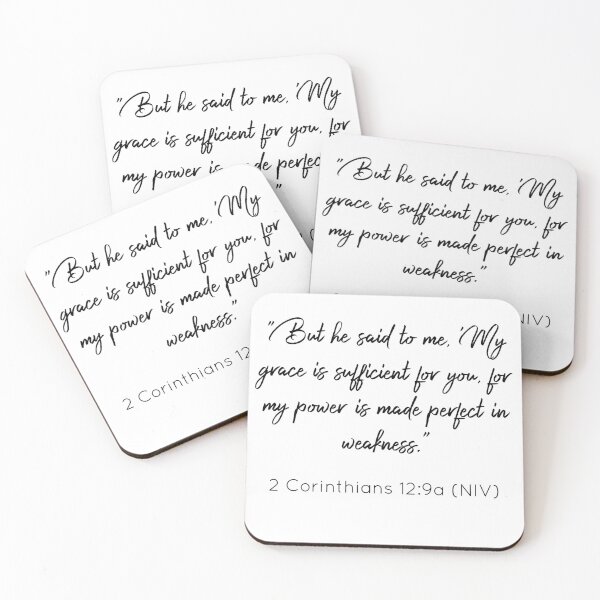 "But he said to me, 'My
grace is sufficient for you, for
my power is made
"But he said to me, 'My
grace is sufficient for you, for
my power is made perfect in
weakness."
NIV)
"But he said to me, 'My
grace is sufficient for you, for
my power is made perfect in
weakness."
2 Corinthians 12
"But he said to me, 'My
grace is sufficient for you, for
my power is made perfect in
weakness."
2 Corinthians 12:9a (NIV)